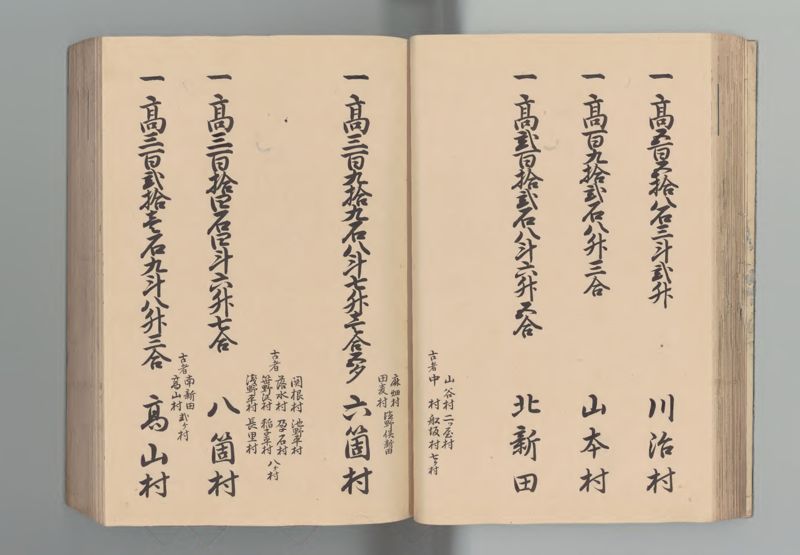 一 高五百五拾八石三斗弐升 川治村
一 高百九拾弐石八升三合 山本村
一 高弐百拾弐石八斗六升五合 北新田
山谷村 二ツ屋村
古者 中村 船坂村 七ヶ村
麻畑村 塩野俣新田
田麦村
一 高三百九拾九石八斗七升壱合五夕 六箇村
関根村 池野平村
古者 落水村 孕石村
笹野沢村 稲子平村 八ヶ村
浅野平村 長里村
一 高三百拾四石四斗六升七合 八箇村
古者 南新田 弐ヶ村
高山村
一 高三百弐拾壱石九斗八升三合 高山村